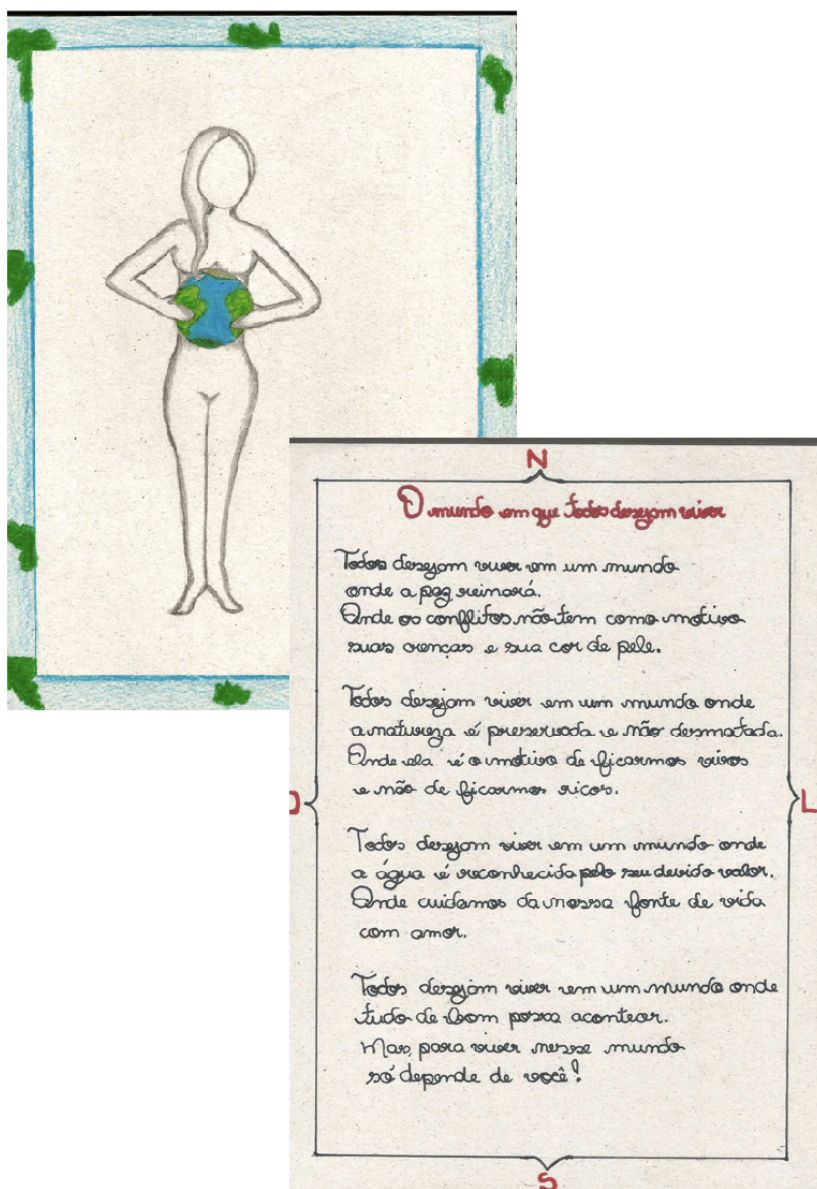 N
O mundo em que todos desejam viver
Todos desejam viver em um mundo
onde a paz reinará.
Onde os conflitos não tem como motivo
suas crenças e sua cor de pele.
Todos desejam viver em um mundo onde
a natureza é preservada e não desmatada.
Onde ela é o motivo de ficarmos vivos
e não de ficarmos ricos.
O
L
Todos desejam viver em um mundo onde
a água é reconhecida pelo seu devido valor.
Onde cuidamos da nossa fonte de vida
com amor.
Todos desejam viver em um mundo onde
tudo de bom possa acontecer.
Mas, para viver nesse mundo
só depende de você!
S